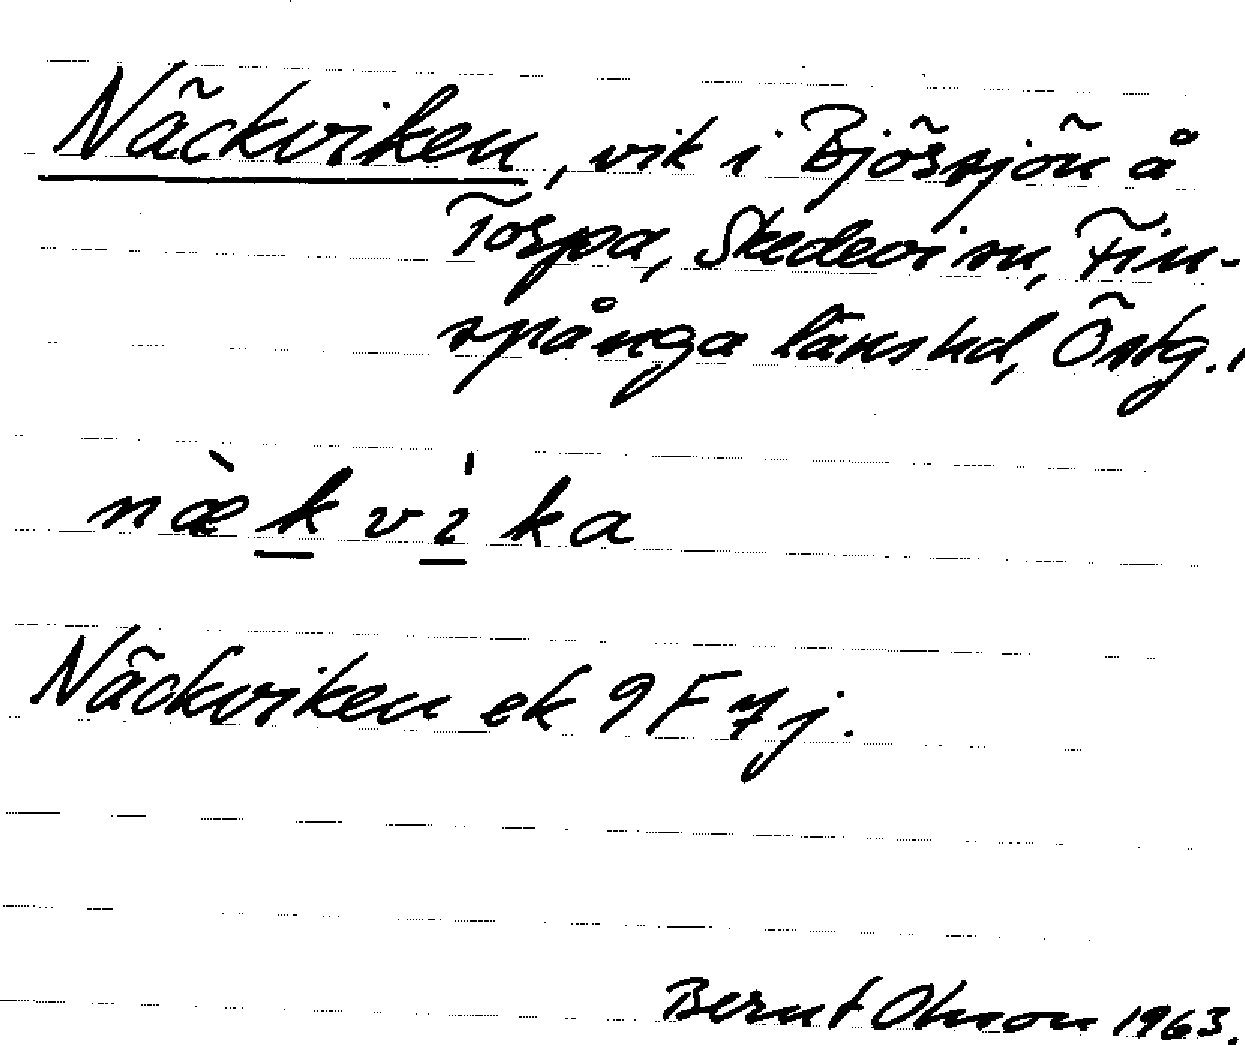 Näckviken, vik i Björsjön å
Torpa, Skedevi sn, Fin-
spånga länshd, Östg.
nækvika
Näckviken ek 9F7j.
Bernt Olsson 1963.